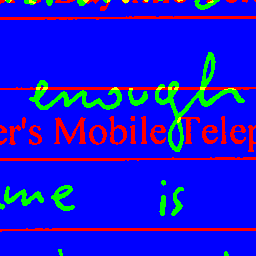 enough
er's Mobile Telep
me is